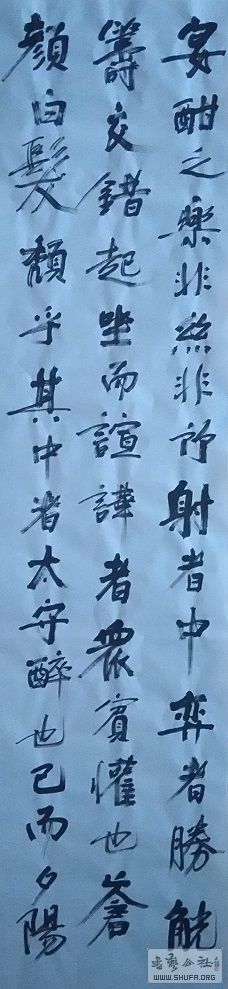 宴酣之樂非絲非竹射者中弈者勝觥
籌交錯起坐而諠譁者眾賓懽也蒼
顏白髮頹乎其中者太守醉也已而夕陽
书艺公社
WWW.SHUFA.ORG